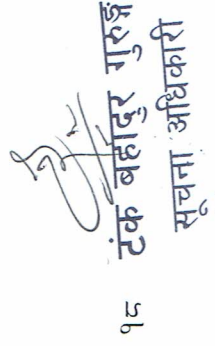 १८
टंक बहादुर गुरुङ्ग
सूचना अधिकारी